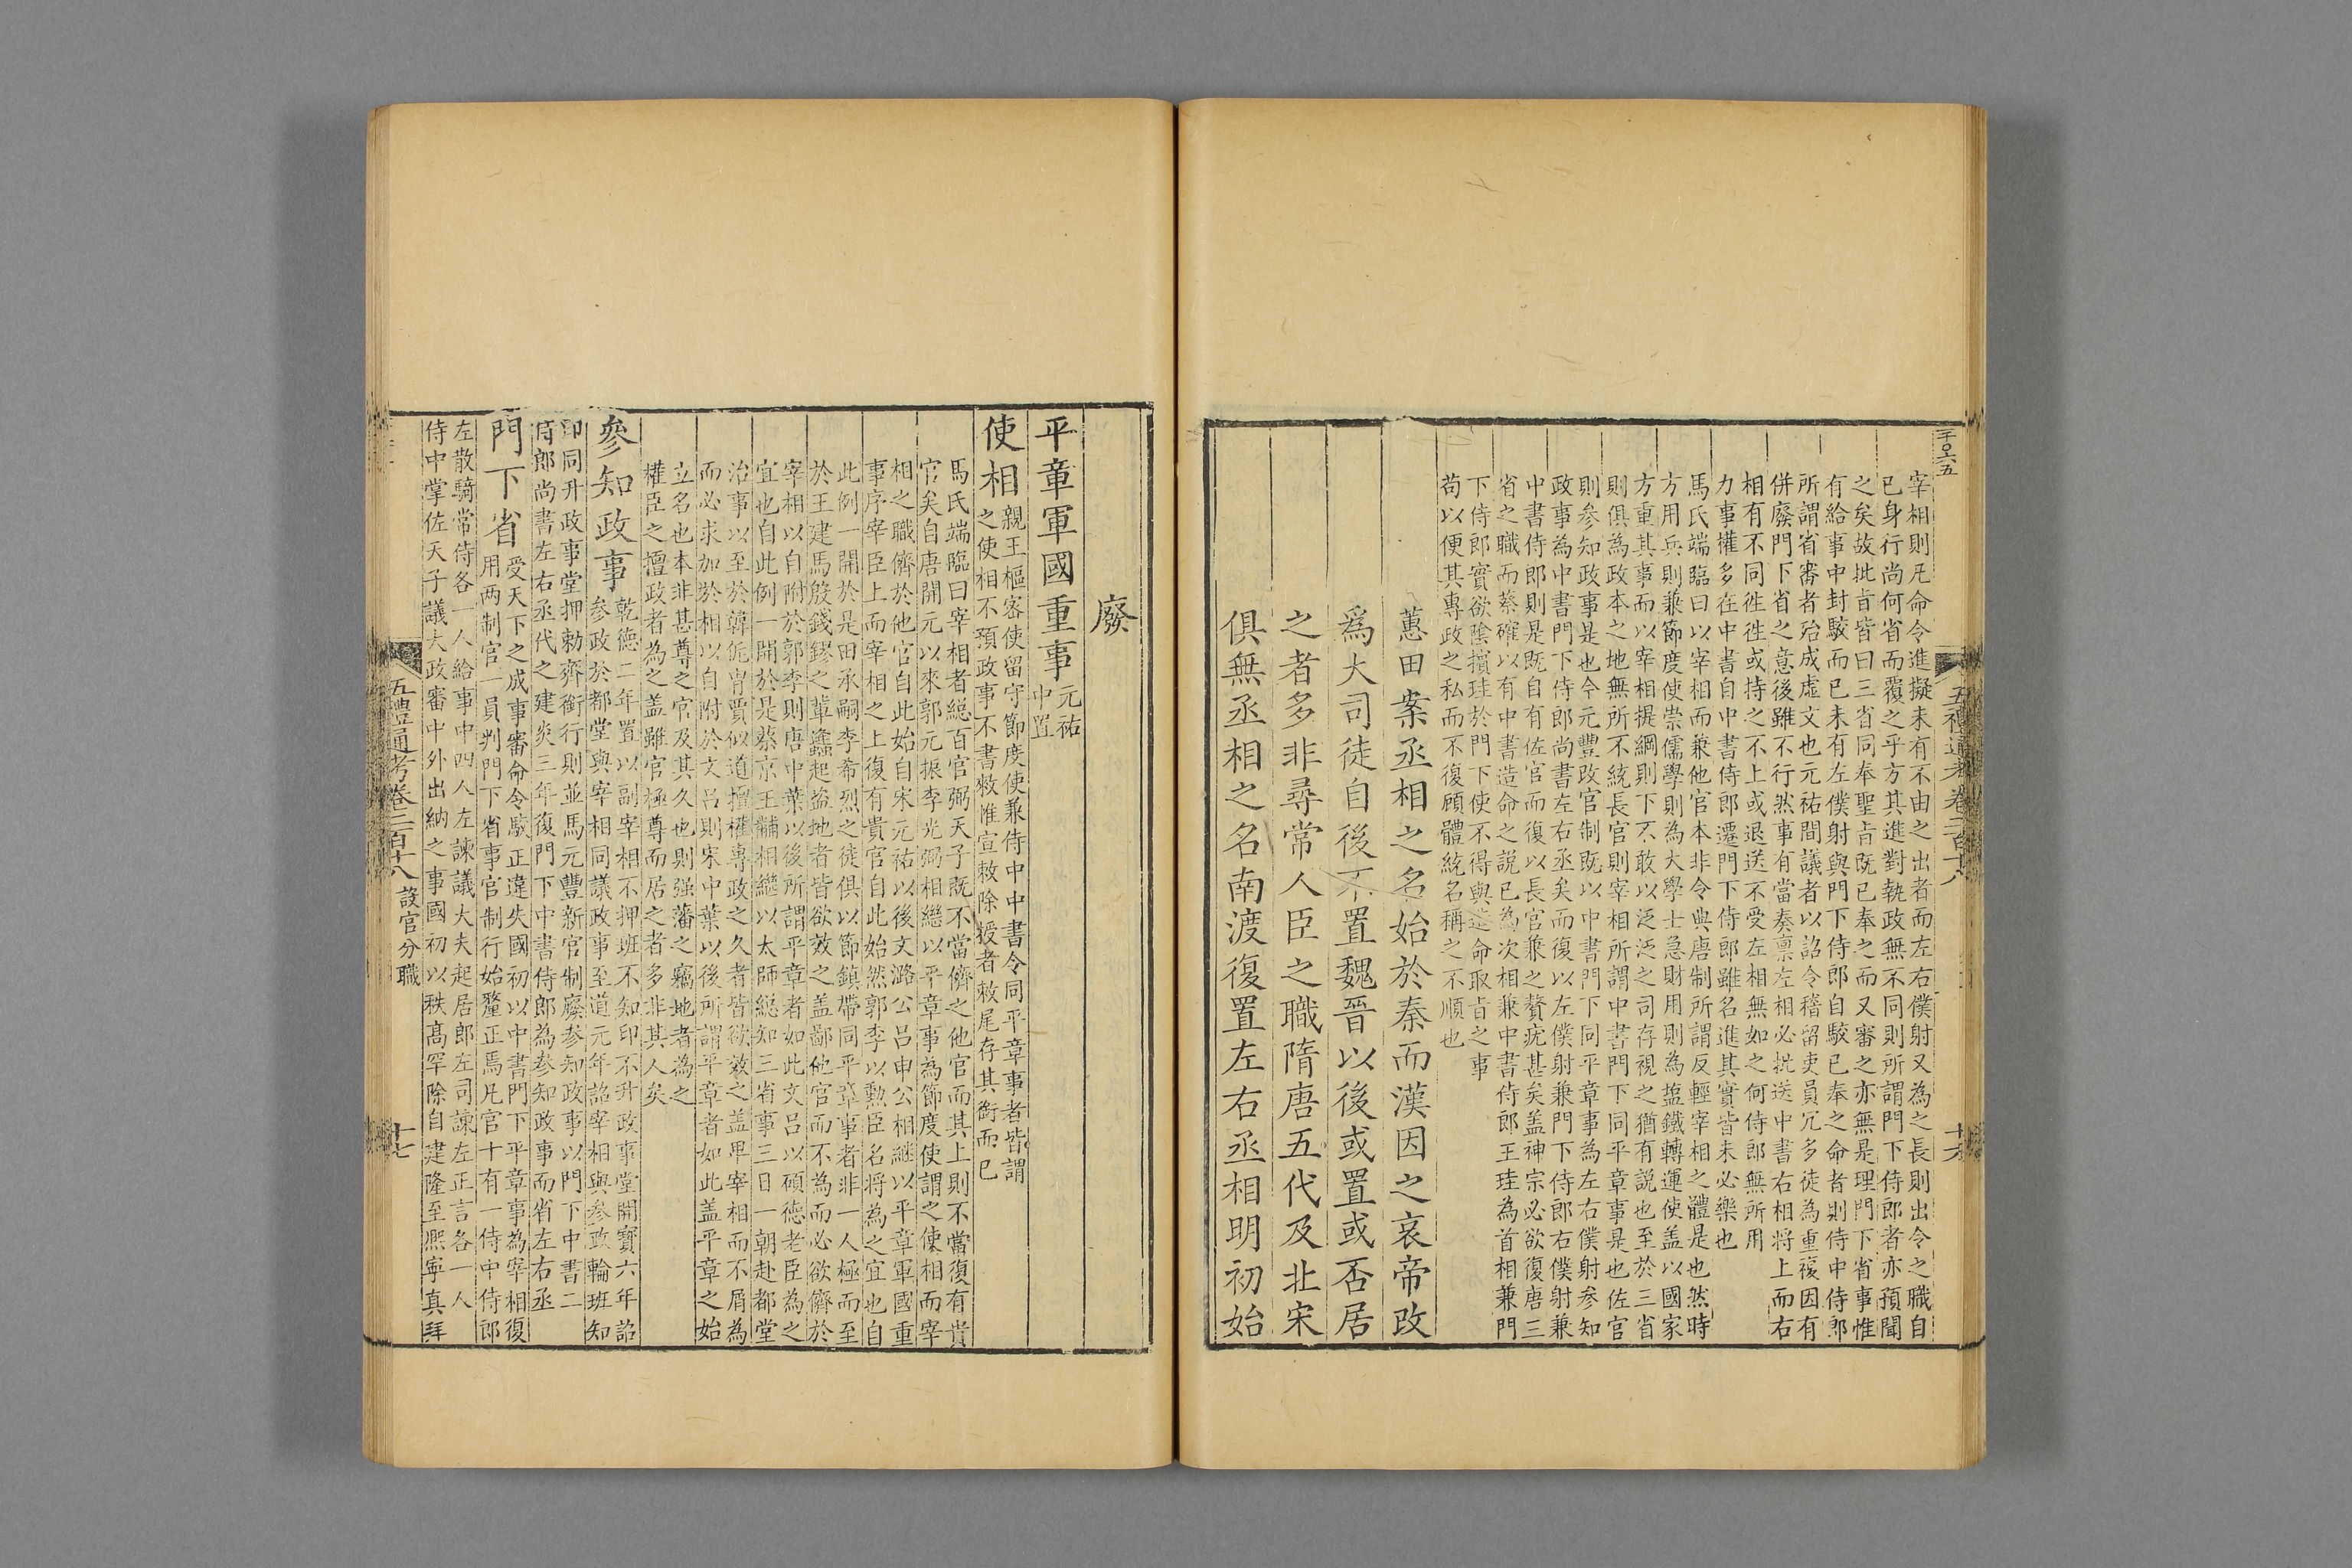 宰相則凡命令進擬未有不由之出者而左右僕射又為之長則出令之職自
已身行尚何省而覆之乎方其進對執政無不同則所謂門下侍郎者亦預聞
之矣故批旨皆曰三省同奉聖旨既已奉之而又審之亦無是理門下省事惟
有給事中封駮而已未有左僕射與門下侍郎自駮已奉之命者則侍中侍郎
所謂省審者殆成虛文也元祐間議者以詔令稽留吏員冗多徒為重複因有
併廢門下省之意後雖不行然事有當奏稟左相必批送中書右相將上而右
相有不同徃徃或持之不上或退送不受左相無如之何侍郎無所用
力事權多在中書自中書侍郎遷門下侍郎雖名進其實皆未必樂也
馬氏端臨曰以宰相而兼他官本非令典唐制所謂反輕宰相之體是也然時
方用兵則兼節度使崇儒學則為大學士急財用則為鹽鐵轉運使盖以國家
方重其事而以宰相提綱則下不敢以泛泛之司存視之猶有説也至於三省
則俱為政本之地無所不統長官則宰相所謂中書門下同平章事是也佐官
則參知政事是也今元豐改官制既以中書門下同平章事為左右僕射參知
政事為中書門下侍郎尚書左右丞矣而復以左僕射兼門下侍郎右僕射兼
中書侍郎則是既自有佐官而復以長官兼之贅疣甚矣盖神宗必欲復唐三
省之職而蔡確以有中書造命之説已為次相兼中書侍郎王珪為首相兼門
下侍郎實欲陰擯珪於門下使不得與造命取旨之事
苟以便其專政之私而不復顧體統名稱之不順也
蕙田案丞相之名始於秦而漢因之哀帝改
爲大司徒自後不置魏晉以後或置或否居
之者多非尋常人臣之職隋唐五代及北宋
俱無丞相之名南渡復置左右丞相明初始
廢
平章軍國重事元祐
中置
使相親王樞密使留守節度使兼侍中中書令同平章事者皆謂
之使相不預政事不書敕惟宣敕除授者敕尾存其銜而已
馬氏端臨曰宰相者緫百官弼天子既不當儕之他官而其上則不當復有貴
官矣自唐開元以來郭元振李光弼相繼以平章事為節度使謂之使相而宰
相之職儕於他官自此始自宋元祐以後文潞公呂申公相継以平章軍國重
事序宰臣上而宰相之上復有貴官自此始然郭李以勲臣名将為之宜也自
此例一開於是田承嗣李希烈之徒俱以節鎮帶同平章事者非一人極而至
於王建馬殷錢鏐之輩蠭起盗地者皆欲效之盖鄙他官而不為而必欲儕於
宰相以自附於郭李則唐中葉以後所謂平章者如此文呂以碩德老臣為之
宜也自此例一開於是蔡京王黼相繼以太師緫知三省事三日一朝赴都堂
治事以至於韓侂胄賈似道擅權專政之久者皆欲效之盖卑宰相而不屑為
而必求加於相以自附於文呂則宋中葉以後所謂平章者如此盖平章之始
立名也本非甚尊之官及其久也則强藩之竊地者為之
權臣之擅政者為之盖雖官極尊而居之者多非其人矣
參知政事乾德二年置以副宰相不押班不知印不升政事堂開寳六年詔
參政於都堂與宰相同議政事至道元年詔宰相與參政輪班知
印同升政事堂押勅齊銜行則並馬元豐新官制廢參知政事以門下中書二
侍郎尚書左右丞代之建炎三年復門下中書侍郎為參知政事而省左右丞
門下省受天下之成事審命令駮正違失國初以中書門下平章事為宰相復
用两制官一員判門下省事官制行始釐正焉凡官十有一侍中侍郎
左散騎常侍各一人給事中四人左諫議大夫起居郎左司諫左正言各一人
侍中掌佐天子議大政審中外出納之事國初以秩髙罕除自建隆至熈寧真拜
五禮通考卷二百十八 設官分職
十七
五禮通考卷二百十八
十六